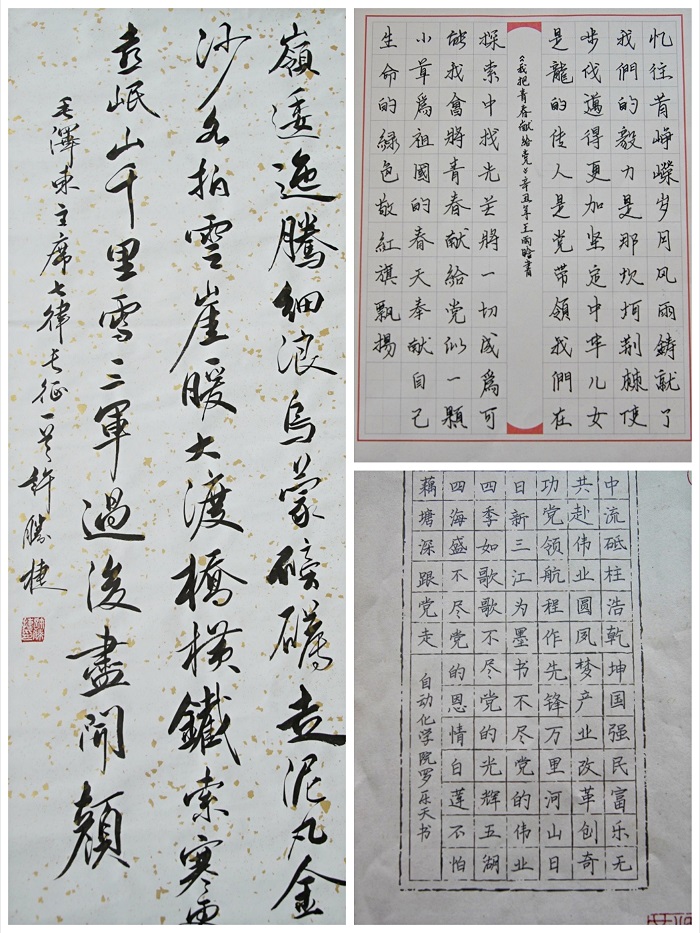 嶺逶迤騰細浪烏蒙磅礴走泥丸金
沙水拍雲崖暖大渡橋橫鐵索寒更
喜岷山千里雪三軍過後盡開顏
毛澤東主席七律長征一首許勝捷
忆往昔崢嶸岁月风雨鑄就了
我們的毅力是那坎坷荆棘使
步伐邁得更加坚定中华儿女
是龍的传人是党带领我們在
《我把青春献给党》辛丑年王雨晗書
探索中找光芒將一切成爲可
能我會將青春献給党似一顆
小草爲祖國的春天奉献自己
生命的緑色敬紅旗飘揚
中流砥柱浩乾坤国强民富乐无
共赴伟业圆夙梦产业改革创奇
功党领航程作先锋万里河山日
日新三江为墨书不尽党的伟业
四季如歌歌不尽党的光辉五湖
四海盛不尽党的恩情白莲不怕
藕塘深跟党走
自动化学院罗乐天书